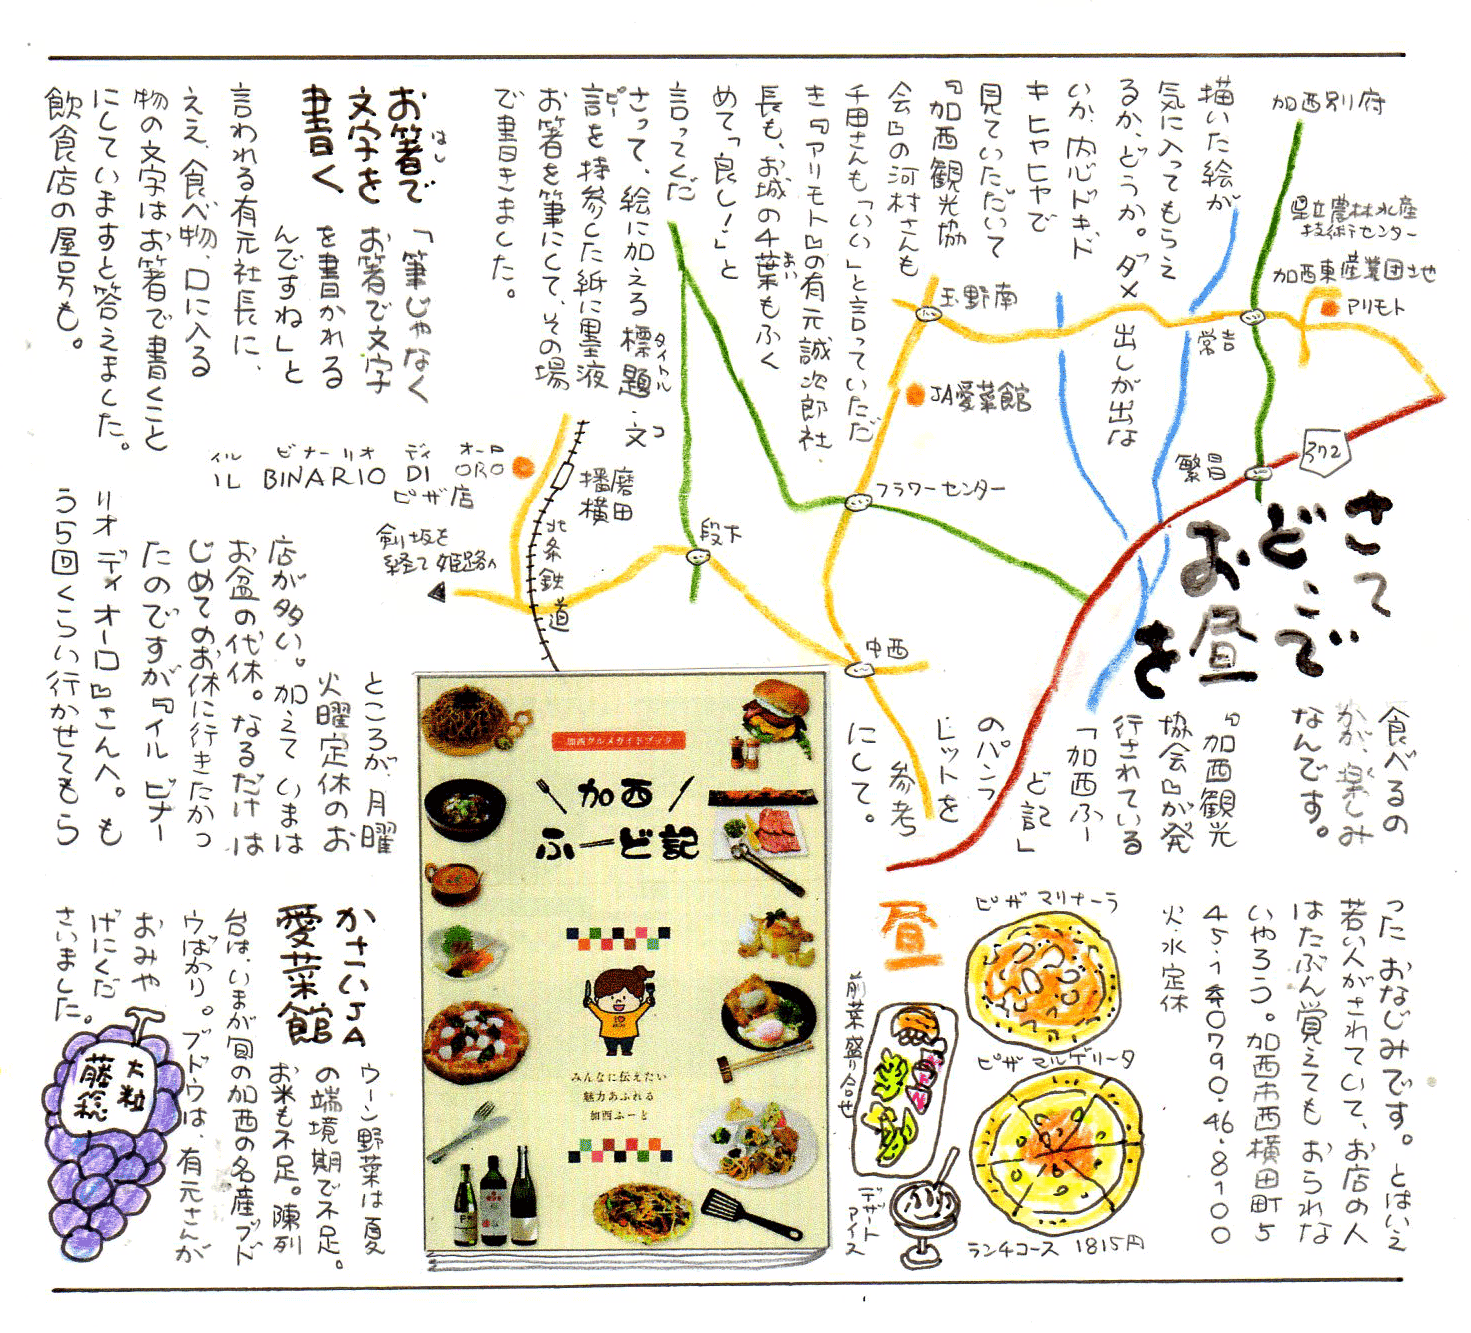 描いた絵が
気に入ってもらえ
るか、どうか。ダメ
出しが出な
いか、内心ドキドキ
ヒヤヒヤで
見ていただいて
『加西観光協
会』の河村さんも
千田さんも「いい」と言っていただ
き『アリモト』の有元誠次郎社
長も、お城の4葉もふく
まい
めて「良し!」と
言ってくだ
さって、絵に加える標題・文
タイトル
コ
言を持参した紙に墨液
ピー
お箸を筆にして、その場
で書きました。
お箸で
はし
文字を
書く
「筆じゃなく
お箸で文字
を書かれる
んですね」と
言われる有元社長に、
ええ、食べ物、口に入る
物の文字はお箸で書くこと
にしていますと答えました。
飲食店の屋号も。
加西別府
県立農林水産
技術センター
加西東産業団地
アリモト
常吉
玉野南
JA愛菜館
繁昌
372
フラワーセンター
段下
中西
播磨
横田
北条鉄道
剣坂を
経て姫路へ
イル ビナーリオ ディ オーロ
IL BINARIO DI ORO
ピザ店
さて
どこで
お昼
を
食べるの
かが、楽しみ
なんです。
『加西観光
協会』が発
行されている
「加西ふー
ど記」
のパンフ
レットを
参考
にして。
ところが、月曜
火曜定休のお
店が多い。加えていまは
お盆の代休。なるだけは
じめてのお休に行きたかっ
たのですが『イル ビナー
リオ ディ オーロ』さんへ。も
う5回くらい行かせてもら
った おなじみです。とはいえ
若い人がされていて、お店の人
はたぶん覚えても おられな
いやろう。加西市西横田町5
45・1☎0790・46・8100
火・水定休
昼
ピザ マリナーラ
ピザ マルゲリータ
前菜盛り合せ
デザート
アイス
ランチコース 1815円
加西グルメガイドブック
加西
ふーど記
みんなに伝えたい
魅力あふれる
加西ふーど
かさいJA
愛菜館
ウーン野菜は夏
の端境期で不足。
お米も不足。陳列
台は、いまが旬の加西の名産ブド
ウばかり。ブドウは、有元さんが
おみや
げにくだ
さいました。
大粒
藤稔